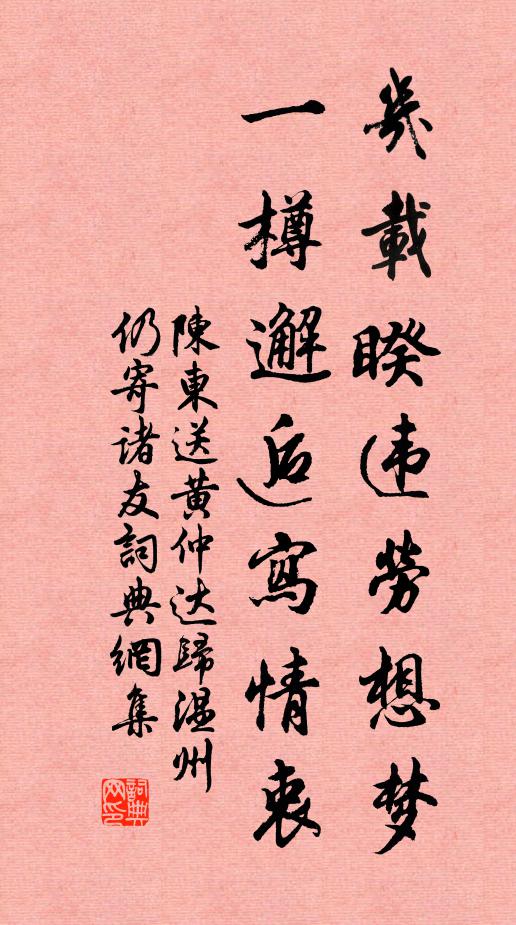 㡬載暌违勞想梦
一樽邂逅寫情衷
陳東送黄仲达歸温州
仍寄诸友詞典網集
詞典
网印